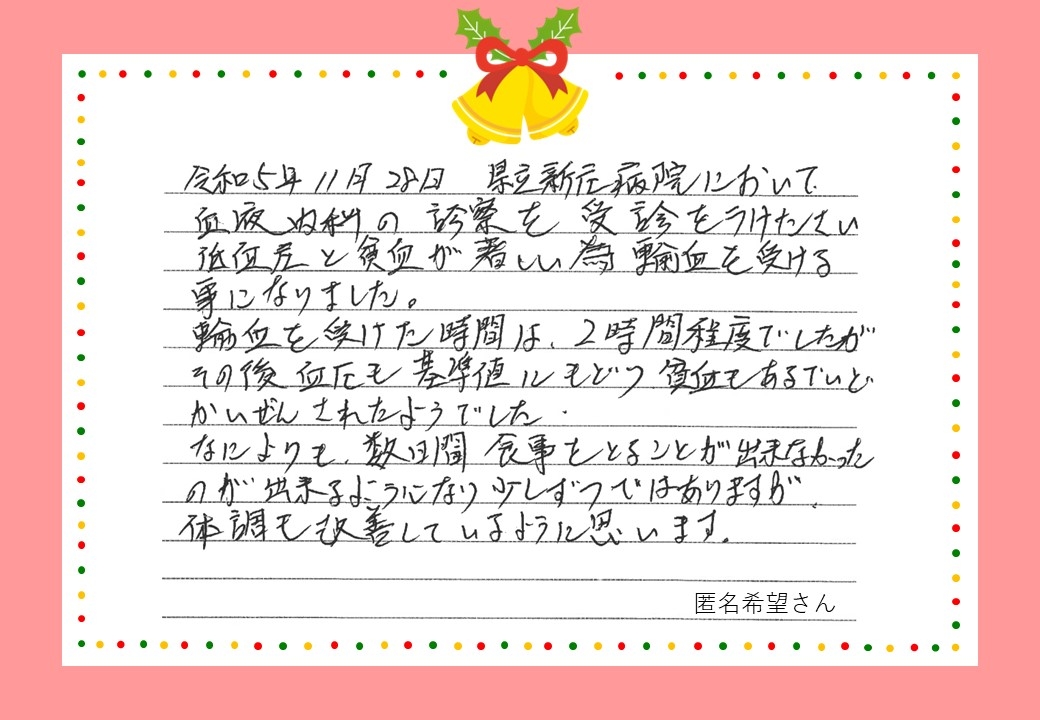 令和5年11月28日 県立新庄病院において
血液内科の診察を受診をうけたさい
低血圧と貧血が著しい為輸血を受ける
事になりました。
輸血を受けた時間は、2時間程度でしたが
その後血圧も基準値にもどり貧血もあるていど
かいぜんされたようでした.
なによりも、数日間食事をとることが出来なかった
のが出来るようになり少しずつではありますが、
体調も改善しているように思います。
匿名希望さん